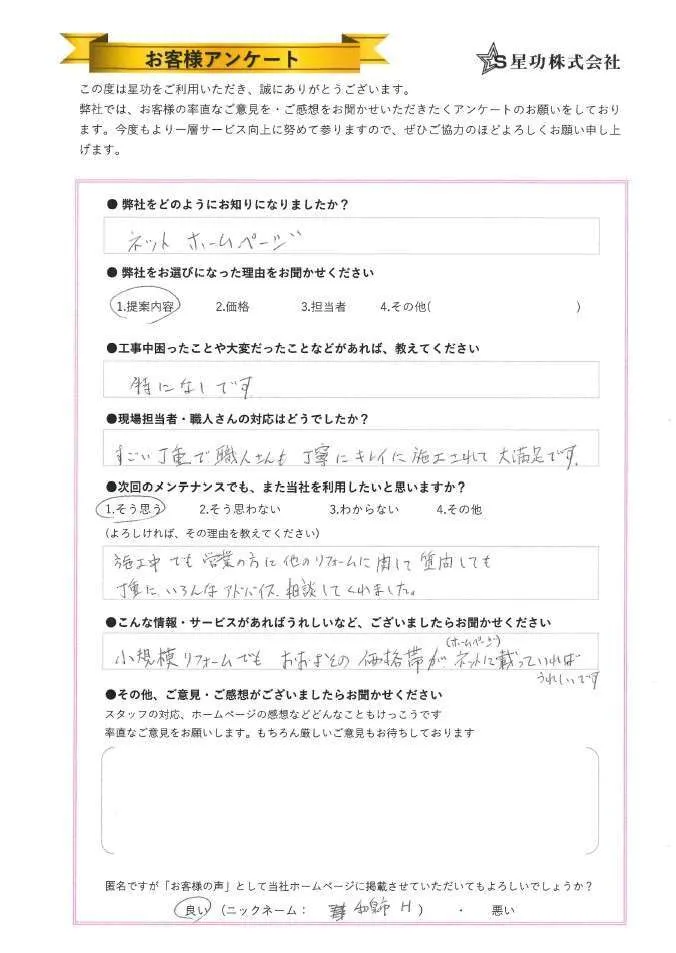 お客様アンケート
S星功株式会社
この度は星功をご利用いただき、誠にありがとうございます。
弊社では、お客様の率直なご意見を・ご感想をお聞かせいただきたくアンケートのお願いをしており
ます。今度もより一層サービス向上に努めて参りますので、ぜひご協力のほどよろしくお願い申し上
げます。
● 弊社をどのようにお知りになりましたか？
ネット ホームページ
● 弊社をお選びになった理由をお聞かせください
1.提案内容 2.価格 3.担当者 4.その他( )
●工事中困ったことや大変だったことなどがあれば、教えてください
特になしです
●現場担当者・職人さんの対応はどうでしたか？
すごい丁重で職人さんも 丁寧にキレイに施工されて 大満足です。
●次回のメンテナンスでも、また当社を利用したいと思いますか？
1.そう思う 2.そう思わない 3.わからない 4.その他
(よろしければ、その理由を教えてください)
施工中でも 営業の方に他のリフォームに関して質問しても
丁重に いろんなアドバイス、相談してくれました。
●こんな情報・サービスがあればうれしいなど、ございましたらお聞かせください
小規模リフォームでも おおよその 価格帯が ネットに載っていれば
(ホームページ)
うれしいです
●その他、ご意見・ご感想がございましたらお聞かせください
スタッフの対応、ホームページの感想などどんなこともけっこうです
率直なご意見をお願いします。もちろん厳しいご意見もお待ちしております
匿名ですが「お客様の声」として当社ホームページに掲載させていただいてもよろしいでしょうか？
良い (ニックネーム： H ) ・ 悪い